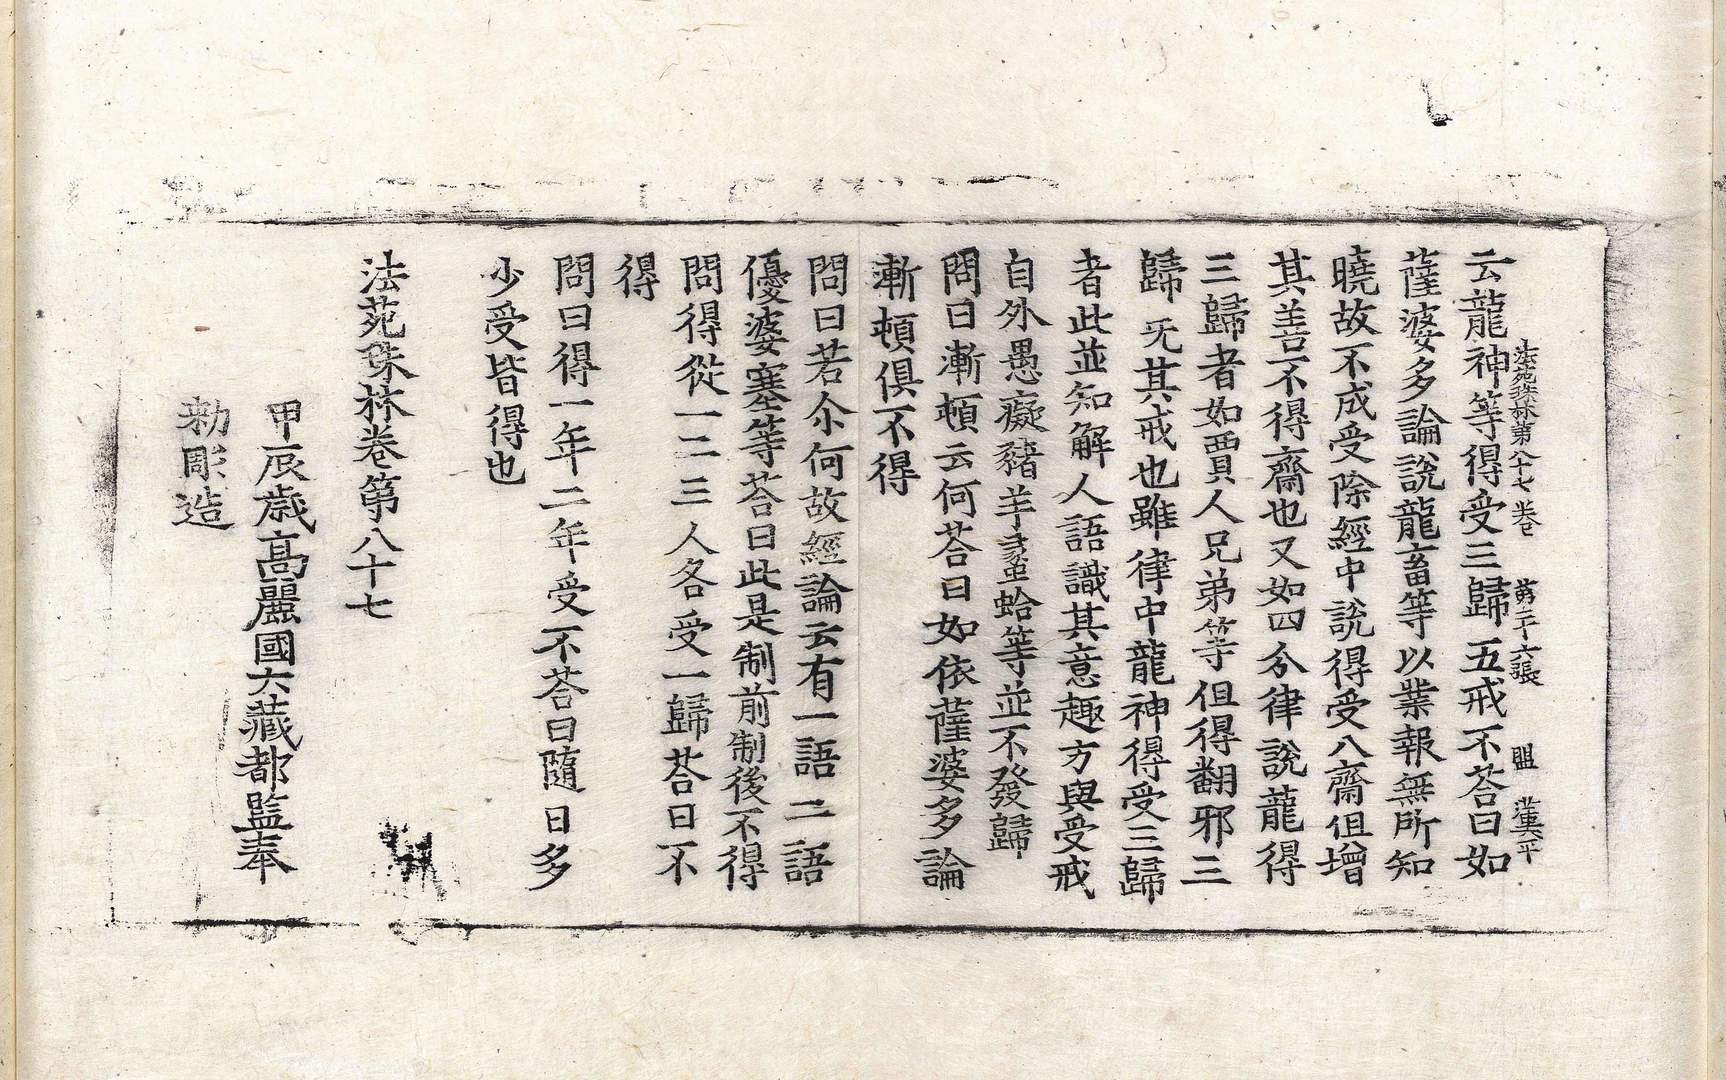 法苑珠林第八十七卷 第二十六張 盟 漢平
云龍神等得受三歸五戒不荅曰如
薩婆多論說龍畜等以業報無所知
曉故不成受除經中說得受八齋但增
其善不得齋也又如四分律說龍得
三歸者如賈人兄弟等但得翻邪三
歸旡其戒也雖律中龍神得受三歸
者此並知解人語識其意趣方與受戒
自外愚癡豬羊蟸蛤等並不發歸
問曰漸頓云何荅曰如依薩婆多論
漸頓俱不得
問曰若尒何故經論云有一語二語
優婆塞等荅曰此是制前制後不得
問得從一二三人各受一歸荅曰不
得
問曰得一年二年受不荅曰隨日多
少受皆得也
法苑珠林卷第八十七
甲辰歲高麗國大藏都監奉
勑彫造